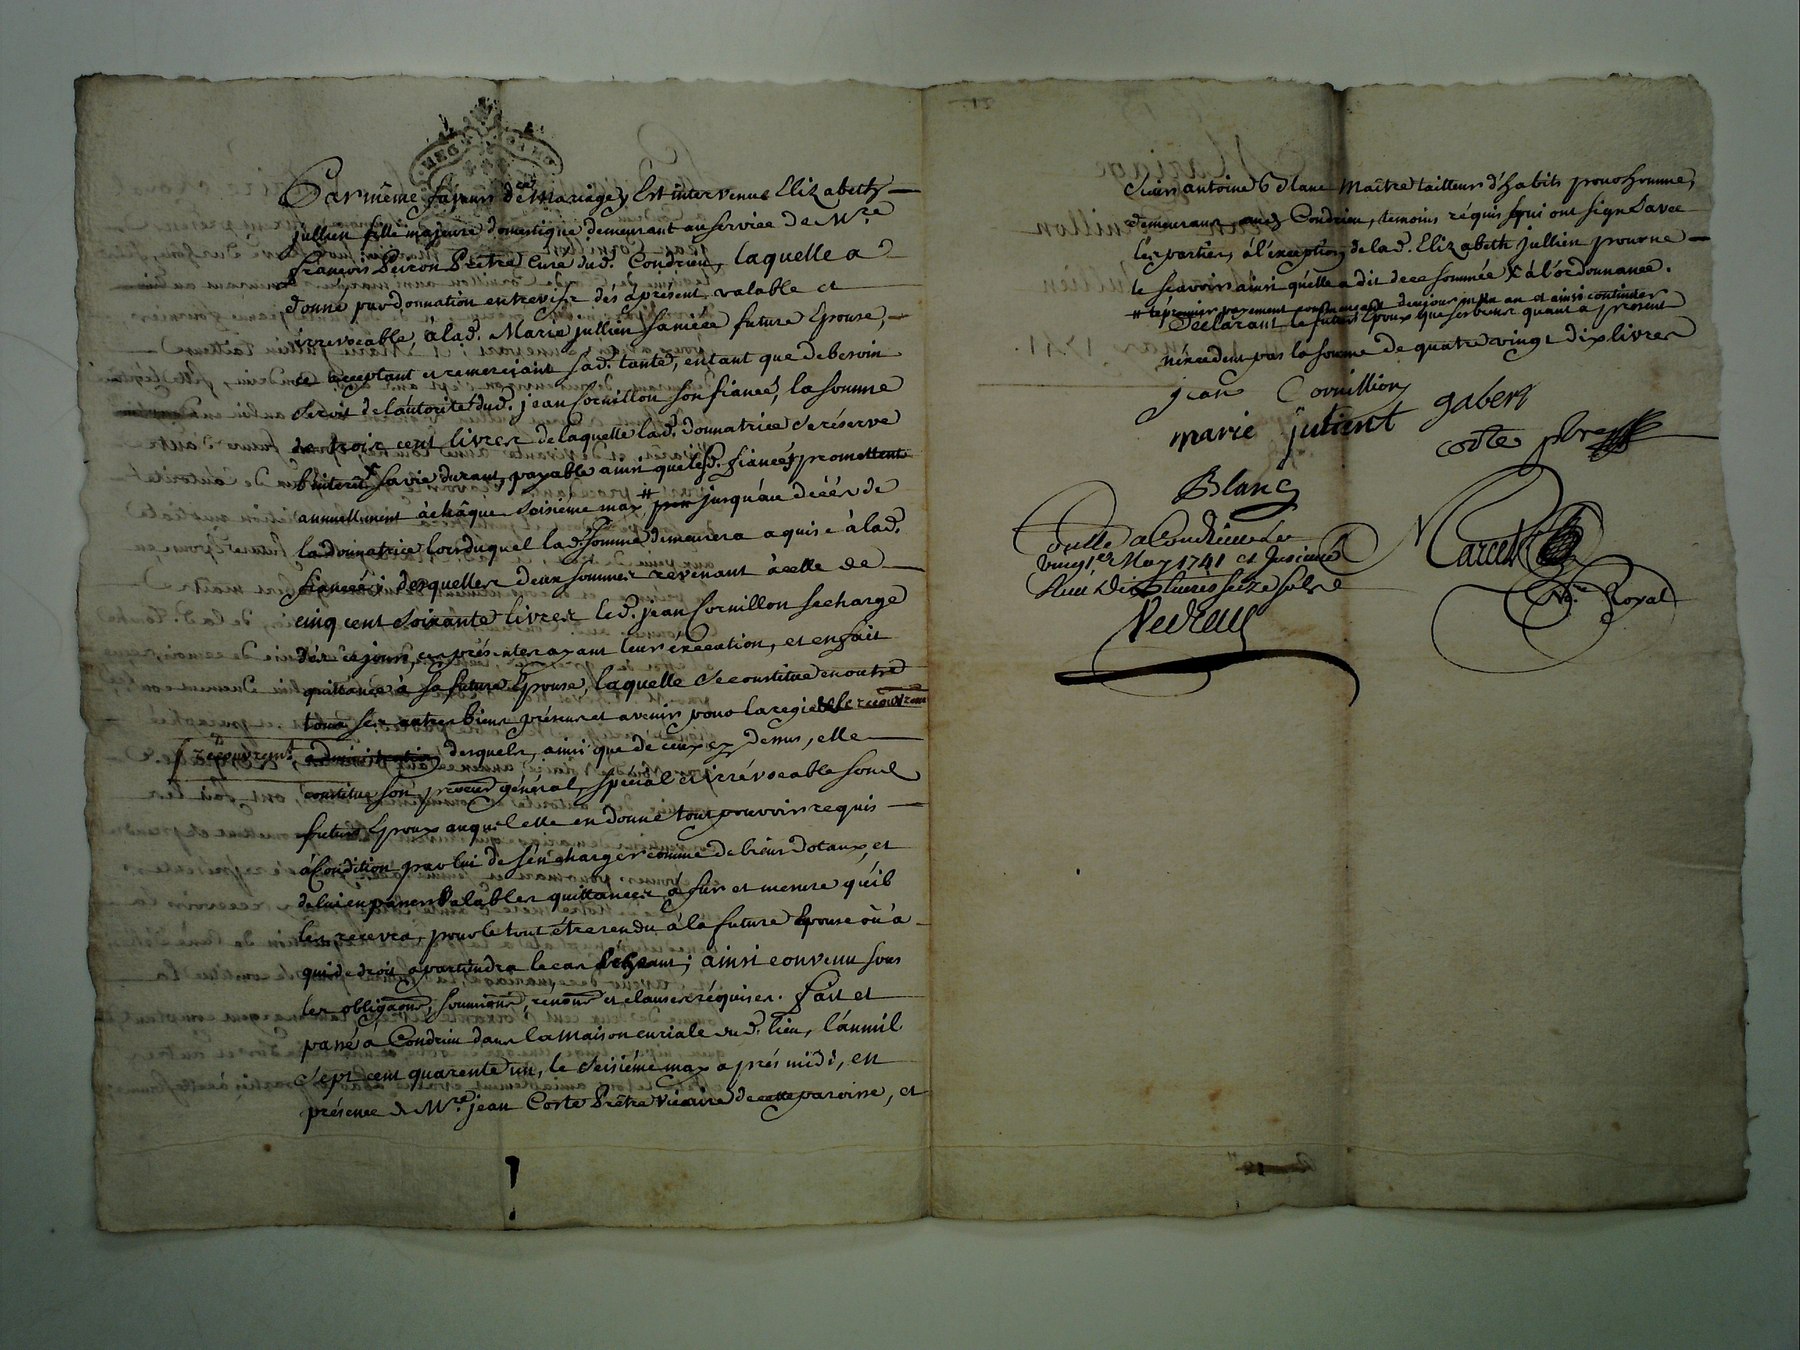 Par même faveur de ces mariages Est intervenue Elizabeth
jullien fille majeure domestique demeurant au service de Mre
françois Peiron Prêtre Curé dud. Condrieu, laquelle a
donné par donnation entrevifs dés apresent valable et
irrevocable, à lad. Marie jullien sa niéce future Epouse,
ce acceptant et remerciant sad. tante, en tant que de besoin
seroit de l'autorité dud. jean Cornillon son fiancé, la somme
de trois cent livres de laquelle lad. donnatrice se réserve
l'interêt sa vie durant, payable ainsi que lesd. fiancés promettent
annuellement à châque seisiéme may # jusqu'au décés de
la donnatrice lors duquel lad. somme demeurera aquise à lad.
fiancée; desquelles deux sommes revenant à celle de
cinq cent soixante livres led. jean Cornillon se charge
dés ce jour, ces présentes ayant leur execution, et en fait
quittance à sa future Epouse, laquelle se constitue en outre
tous ses autres biens présens et avenir pour la regie et le recouvrem
recouvremt desquels, ainsi que de ceux cy dessus, elle
constitue son procur général, spécial et irrévocable sond
futur Epoux auquel elle en donne tout pouvoir requis
à Condition par lui de s'en charger comme de biens dotaux, et
de lui en passer valables quittances à fur et mesure qu'il
les recevra, pour le tout être rendu à la future Epouse où à
qui de droit apartiendra le cas échéant; ainsi convenu sous
les obligaons, soumissons, renons et clauses requises. fait et
passé a Condrieu dans la maison curiale dud. lieu, l'an mil
sept cent quarente un, le seisiéme may aprés midi, en
présence de Mre jean Coste Prêtre vicaire de cette paroisse, et
sieur antoine Blanc Maître tailleur d'habits pour homme,
demeurans aud. Condrieu, temoins réquis qui ont signé avec
les parties, à l'exception de lad. Elizabeth jullien pour ne
le sçavoir ainsi qu'elle a dit de ce sommée à l'ordonnance.
# le premier payement commençant d'aujourd'huy en un an et ainsi continuer
Déclarant le futur Epoux que ses biens quant à present
n'excedent pas la somme de quatre vingt dix livres
jean Cornillion gabert
marie jullient coste pbre
Blanc
Conllé a Condrieu le
vingt er May 1741 et Insinué
Reçu Dix livres seize sols
Vedreul
Marcet
Nre Royal